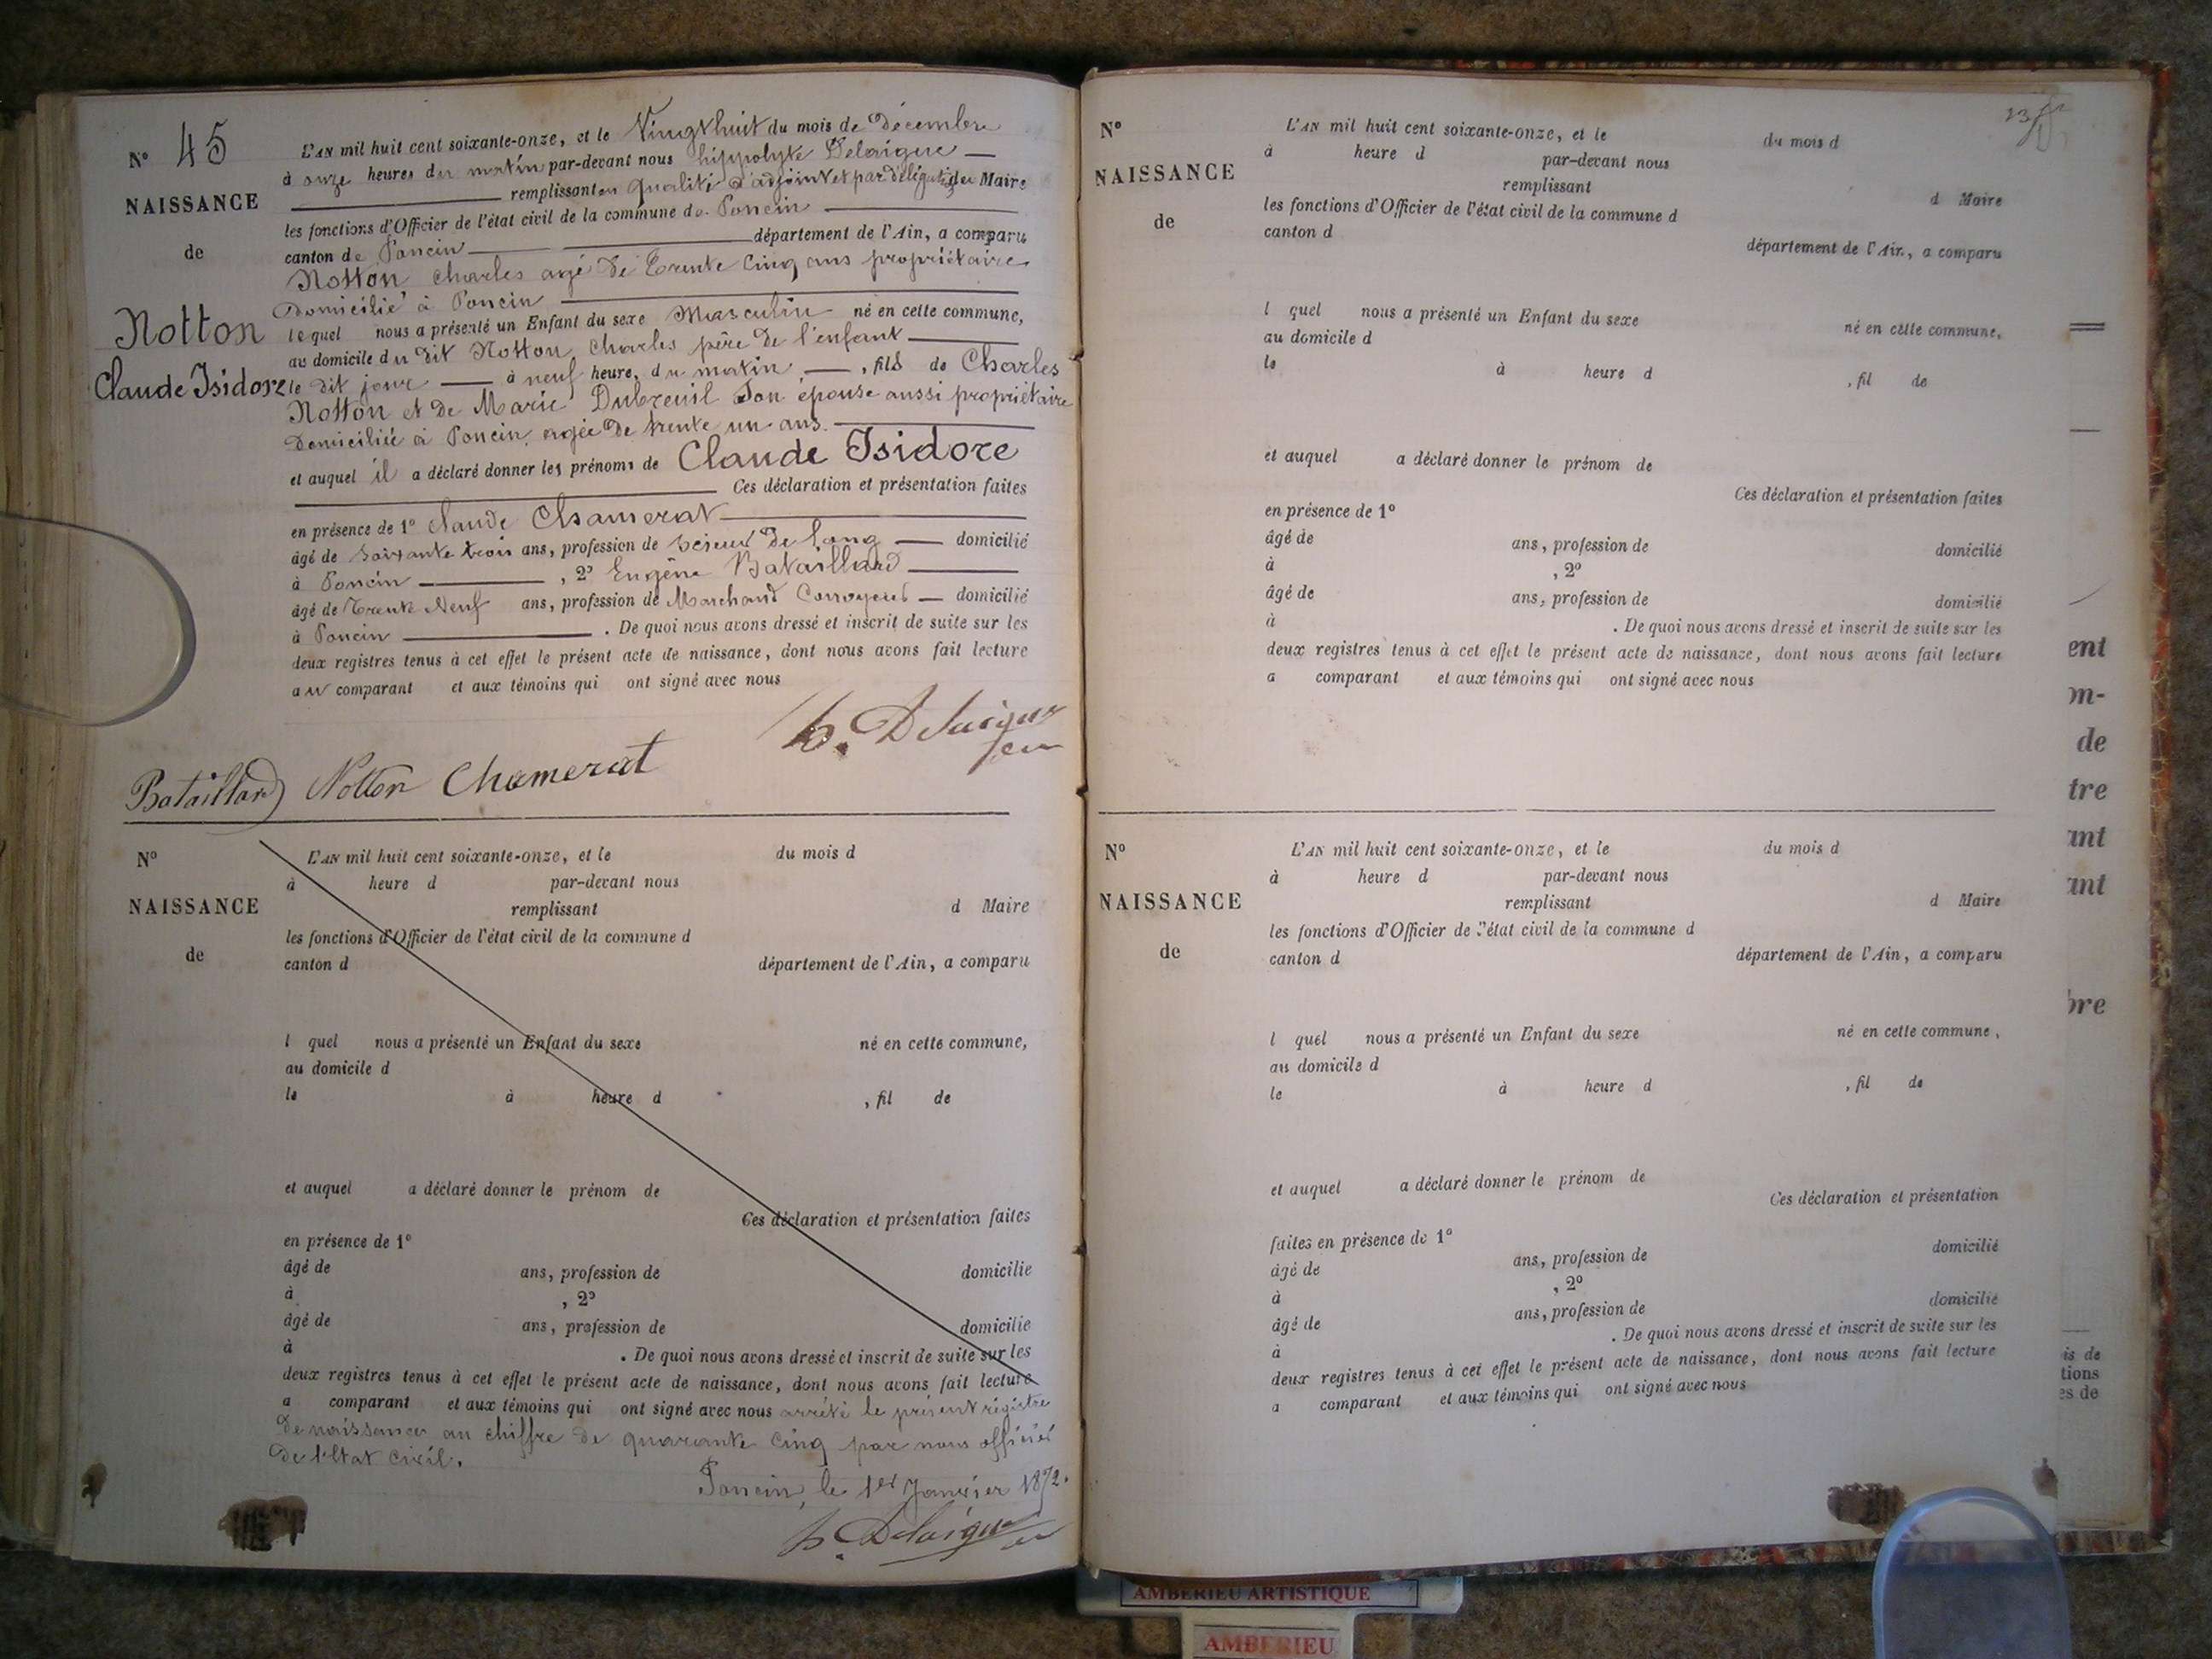 N° 45
NAISSANCE
de
Notton
Claude Isidore
L'AN mil huit cent soixante-onze, et le Vingt huit du mois de Décembre
à onze heures du matin par-devant nous hippolyte Delaigue
remplissant en qualité d'adjoint et par délégation du Maire
les fonctions d'Officier de l'état civil de la commune de Poncin
canton de Poncin département de l'Ain, a comparu
Notton Charles agé de Trente Cinq ans propriétaire
Domicilié à Poncin
lequel nous a présenté un Enfant du sexe Masculin né en cette commune,
au domicile du dit Notton Charles père de l'enfant
le dit jour à neuf heure, du matin, fils de Charles
Notton et de Marie Dubreuil Son épouse aussi propriétaire
Domiciliée à Poncin, agée de trente un ans.
et auquel il a déclaré donner les prénoms de Claude Isidore
Ces déclaration et présentation faites
en présence de 1° Claude Chamerat
âgé de Soixante trois ans, profession de scieur de long domicilié
à Poncin, 2° Eugène Bataillard
âgé de Trente Neuf ans, profession de Marchand Corroyeur domicilié
à Poncin. De quoi nous avons dressé et inscrit de suite sur les
deux registres tenus à cet effet le présent acte de naissance, dont nous avons fait lecture
au comparant et aux témoins qui ont signé avec nous
h. Delaigue
Bataillard Notton Chamerat
N°
NAISSANCE
de
L'AN mil huit cent soixante-onze, et le du mois d
à heure d par-devant nous
remplissant d Maire
les fonctions d'Officier de l'état civil de la commune d
canton d département de l'Ain, a comparu
l quel nous a présenté un Enfant du sexe né en cette commune,
au domicile d
le à heure d , fil de
et auquel a déclaré donner le prénom de
Ces déclaration et présentation faites
en présence de 1°
âgé de ans, profession de domicilié
à , 2°
âgé de ans, profession de domicilié
à . De quoi nous avons dressé et inscrit de suite sur les
deux registres tenus à cet effet le présent acte de naissance, dont nous avons fait lecture
a comparant et aux témoins qui ont signé avec nous arrêté le présent régistre
de naissances au chiffre de quarante cinq par nous officier
de l'État civil.
Poncin, le 1er Janvier 1872.
h. Delaigue
N°
NAISSANCE
de
L'AN mil huit cent soixante-onze, et le du mois d
à heure d par-devant nous
remplissant d Maire
les fonctions d'Officier de l'état civil de la commune d
canton d département de l'Ain, a comparu
l quel nous a présenté un Enfant du sexe né en cette commune,
au domicile d
le à heure d , fil de
et auquel a déclaré donner le prénom de
Ces déclaration et présentation faites
en présence de 1°
âgé de ans, profession de domicilié
à , 2°
âgé de ans, profession de domicilié
à . De quoi nous avons dressé et inscrit de suite sur les
deux registres tenus à cet effet le présent acte de naissance, dont nous avons fait lecture
a comparant et aux témoins qui ont signé avec nous
N°
NAISSANCE
de
L'AN mil huit cent soixante-onze, et le du mois d
à heure d par-devant nous
remplissant d Maire
les fonctions d'Officier de l'état civil de la commune d
canton d département de l'Ain, a comparu
l quel nous a présenté un Enfant du sexe né en cette commune,
au domicile d
le à heure d , fil de
et auquel a déclaré donner le prénom de
Ces déclaration et présentation
faites en présence de 1°
âgé de ans, profession de domicilié
à , 2°
âgé de ans, profession de domicilié
à . De quoi nous avons dressé et inscrit de suite sur les
deux registres tenus à cet effet le présent acte de naissance, dont nous avons fait lecture
a comparant et aux témoins qui ont signé avec nous
ent
on-
de
tre
ant
ant
bre
is de
tions
es de
AMBERIEU ARTISTIQUE
AMBERIEU